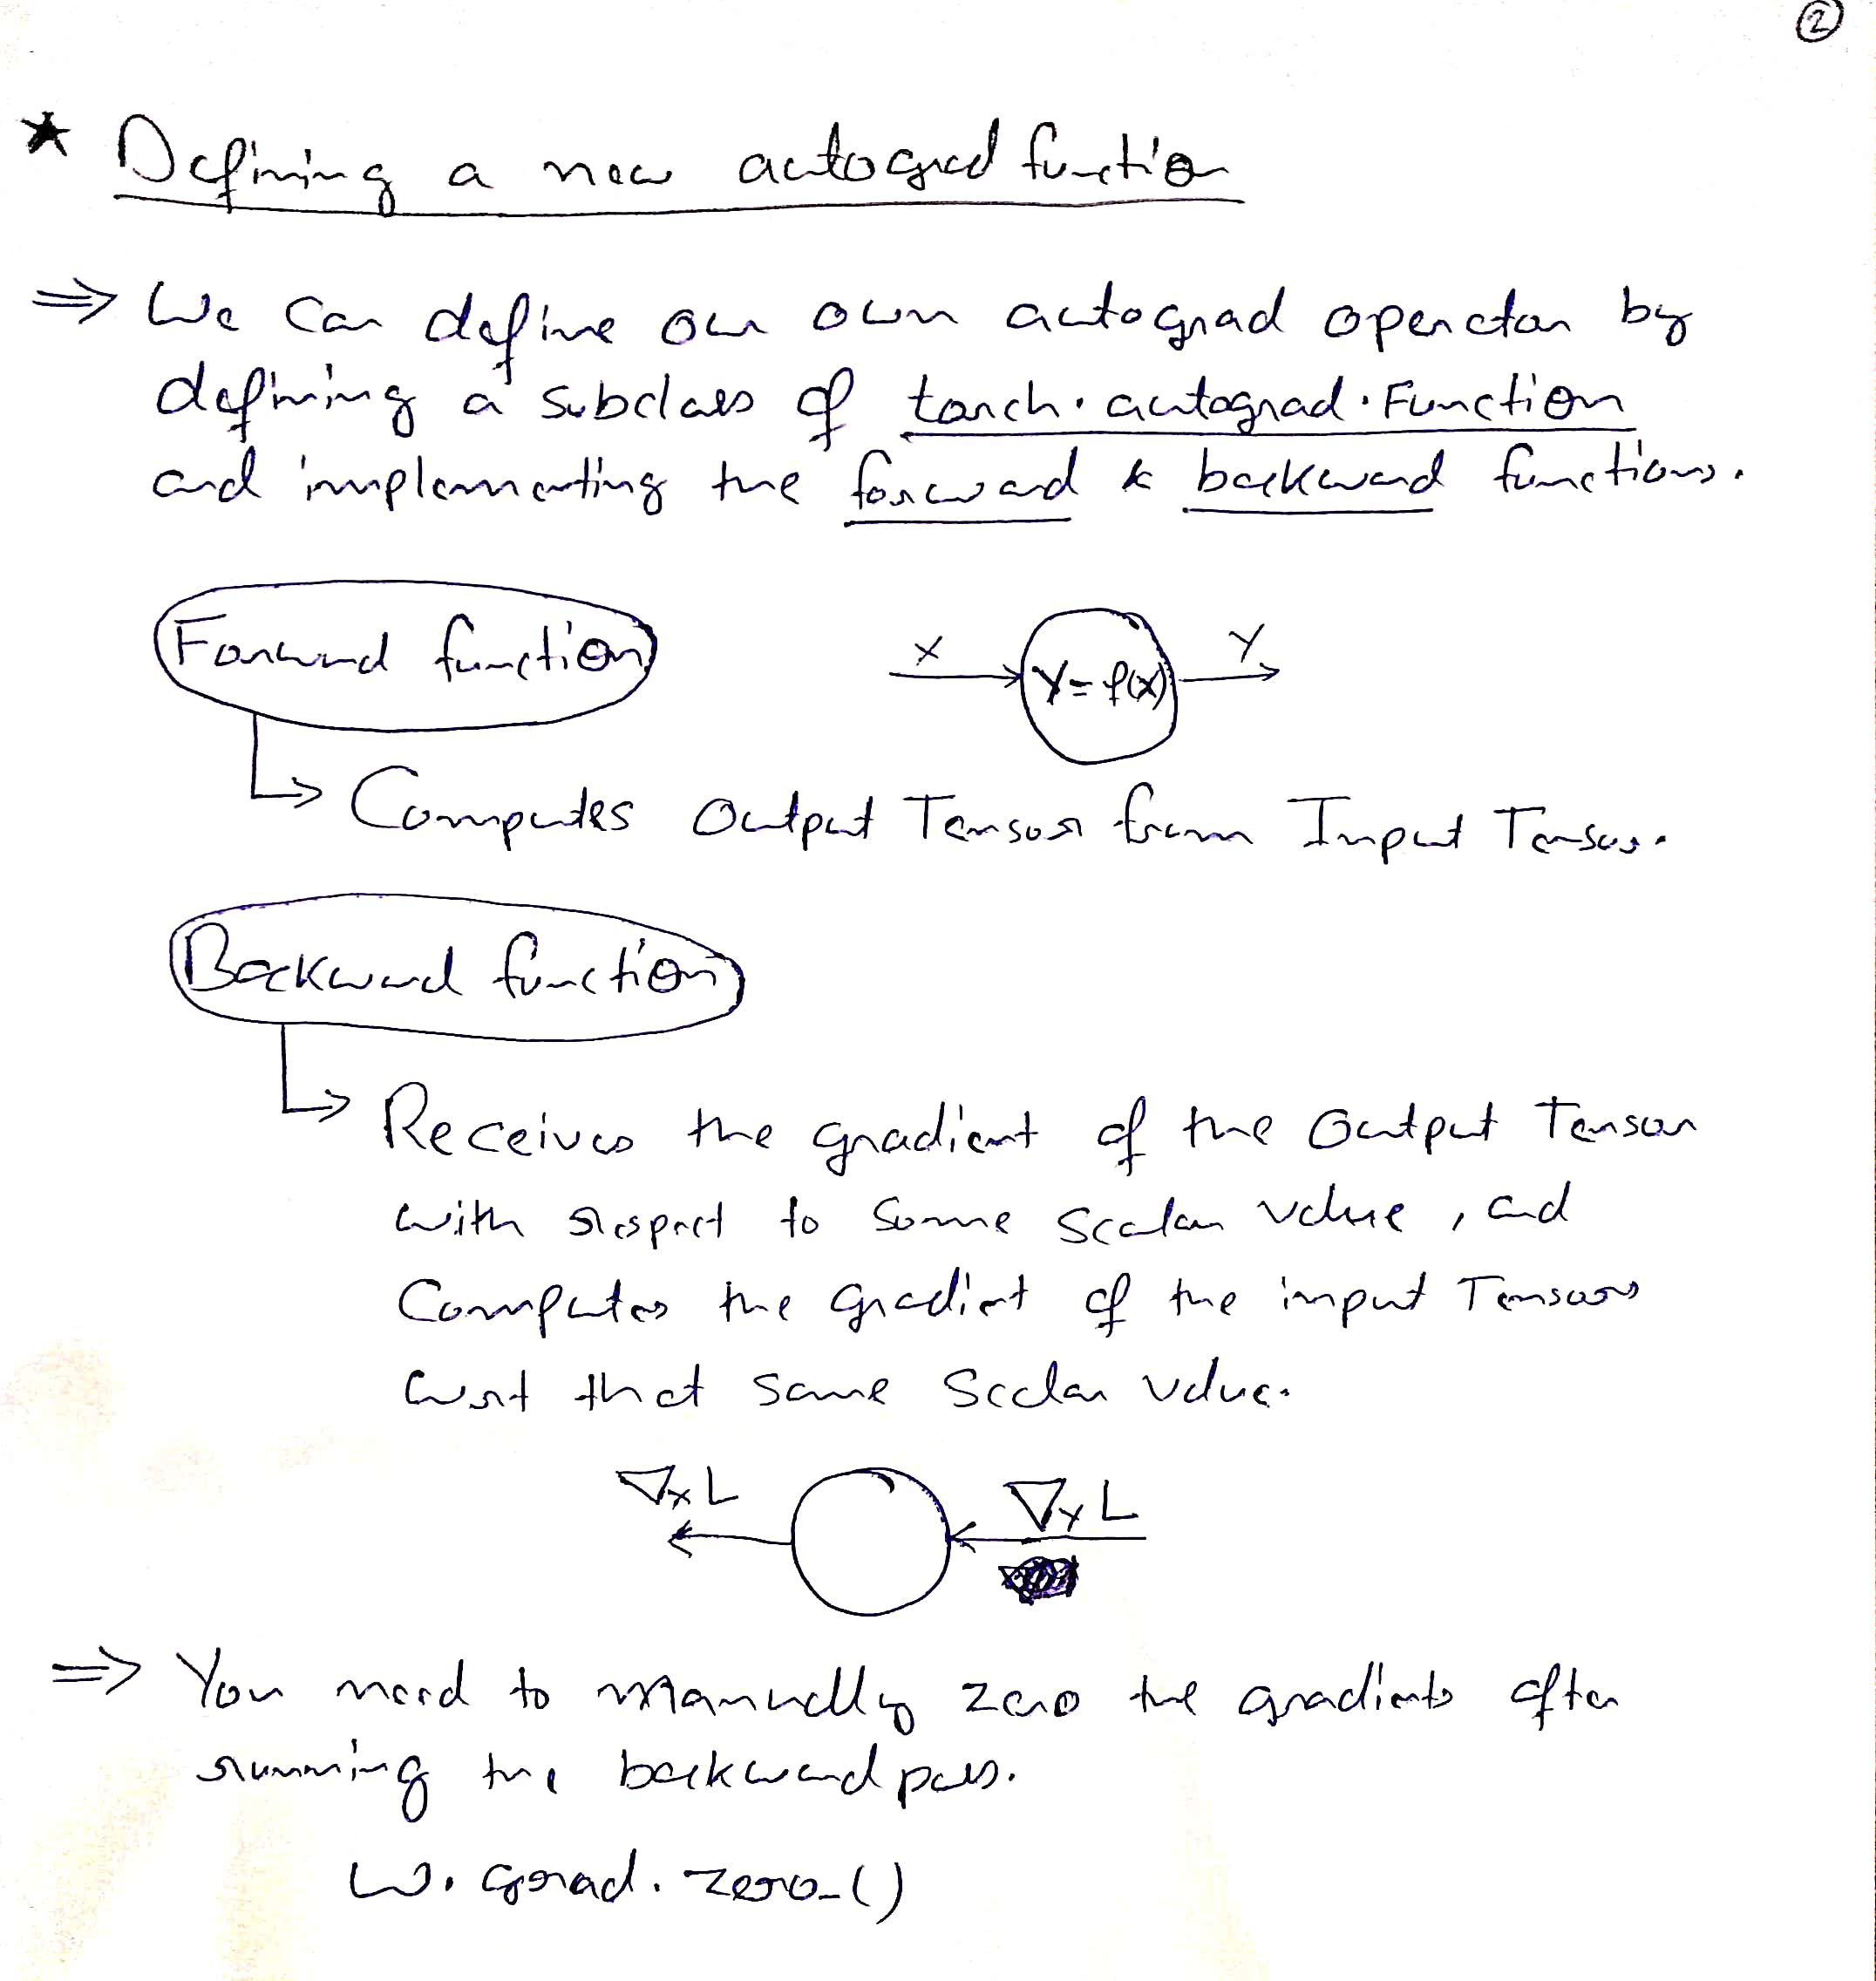 ②
★ Defining a new autograd function
⇒ We can define our own autograd operator by
defining a subclass of torch.autograd.Function
and implementing the forward & backward functions.
Forward function
X Y=f(X) Y
↳ Computes Output Tensor from Input Tensor.
Backward function
↳ Receives the gradient of the Output Tensor
with respect to some scalar value, and
Computes the gradient of the input Tensors
wrt that same scalar value.
∇xL ∇yL
⇒ You need to manually zero the gradients after
running the backward pass.
W.grad.zero_()